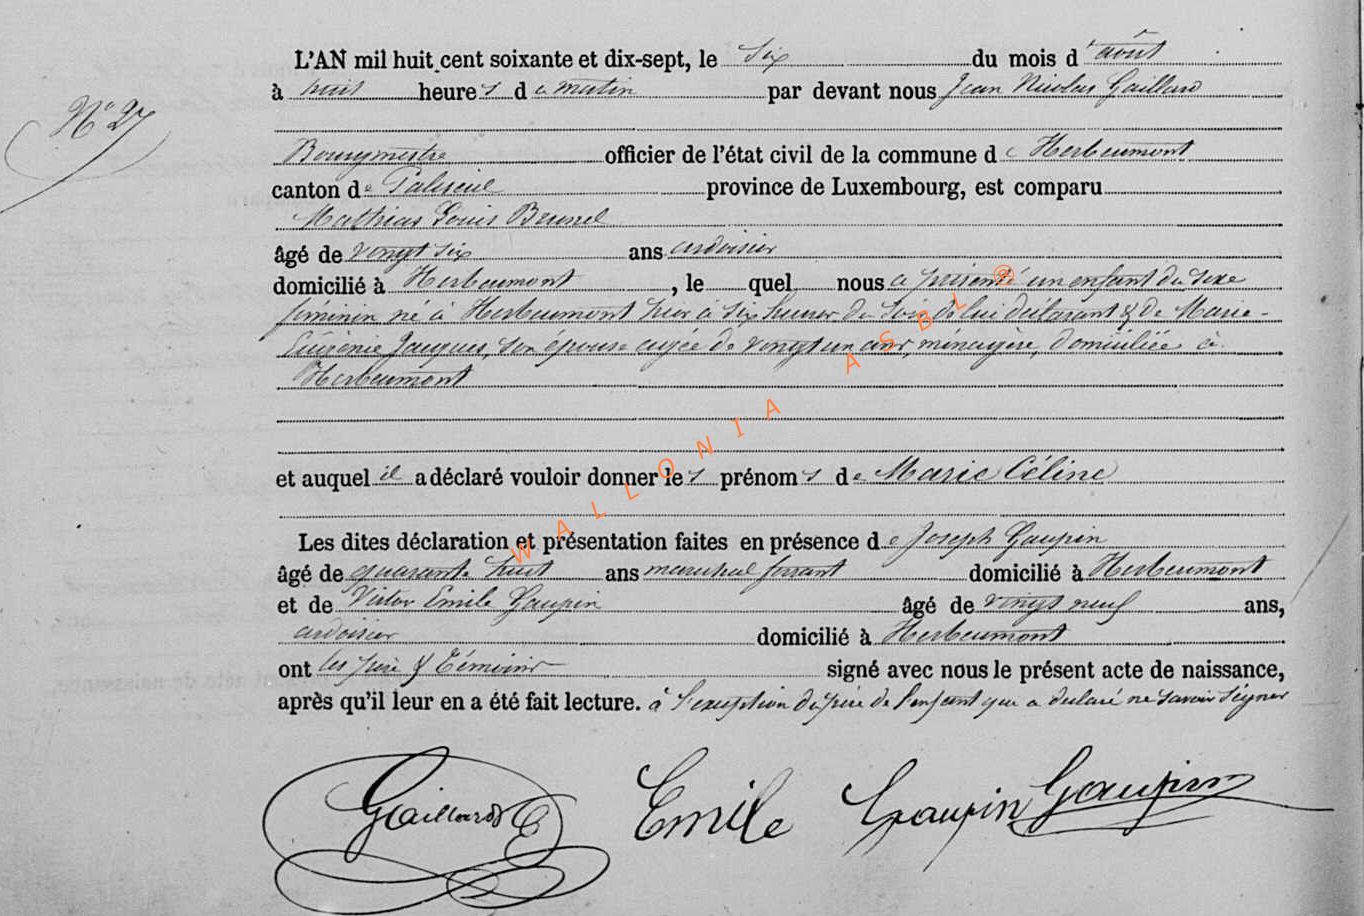 L'AN mil huit cent soixante et dix-sept, le Six du mois d'août
N° 27
à huit heures du matin par devant nous Jean Nicolas Gaillard
Bourgmestre officier de l'état civil de la commune de Herbeumont
canton de Paliseul province de Luxembourg, est comparu
Mathias Louis Brunel
âgé de vingt six ans ardoisier
domicilié à Herbeumont, le quel nous a présenté un enfant du sexe
féminin né à Herbeumont hier à six heures du Soir de lui déclarant & de Marie-
Eugénie Jacques, son épouse agée de vingt un ans, ménagère, domiciliée à
Herbeumont
et auquel il a déclaré vouloir donner les prénoms de Marie Céline
Les dites déclaration et présentation faites en présence de Joseph Gaupin
âgé de quarante huit ans marechal ferrant domicilié à Herbeumont
et de Victor Emile Gaupin âgé de vingt neuf ans,
ardoisier domicilié à Herbeumont
ont les père & témoins signé avec nous le présent acte de naissance,
après qu'il leur en a été fait lecture. à l'exception du père de l'enfant qui a déclaré ne savoir signer
Gaillard Emile Gaupin Gaupin
WALLONIA ASBL ®